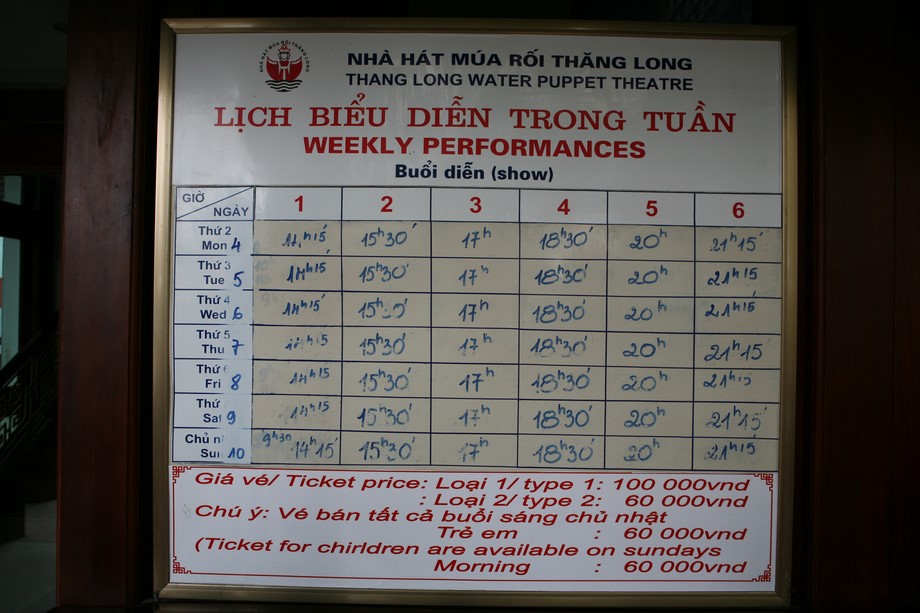 NHÀ HÁT MÚA RỐI THĂNG LONG
NHÀ HÁT MÚA RỐI THĂNG LONG
THANG LONG WATER PUPPET THEATRE
LỊCH BIỂU DIỄN TRONG TUẦN
WEEKLY PERFORMANCES
Buổi diễn (show)
GIỜ NGÀY 1 2 3 4 5 6
Thứ 2
Mon 4 14h15 15h30' 17h 18h30' 20h 21h15'
Thứ 3
Tue 5 14h15 15h30' 17h 18h30' 20h 21h15
Thứ 4
Wed 6 14h15' 15h30' 17h 18h30' 20h 21h15
Thứ 5
Thu 7 14h15 15h30' 17h 18h30' 20h 21h15
Thứ 6
Fri 8 14h15 15h30' 17h 18h30' 20h 21h15
Thứ
Sat 9 14h15 15h30' 17h 18h30' 20h 21h15'
Chủ nh 9h30
Sun 10 14h15' 15h30' 17h 18h30' 20h 21h15
Giá vé/ Ticket price: Loại 1/ type 1: 100 000vnd
: Loại 2/ type 2: 60 000vnd
Chú ý: Vé bán tất cả buổi sáng chủ nhật
Trẻ em : 60 000vnd
(Ticket for chirldren are available on sundays
Morning : 60 000vnd